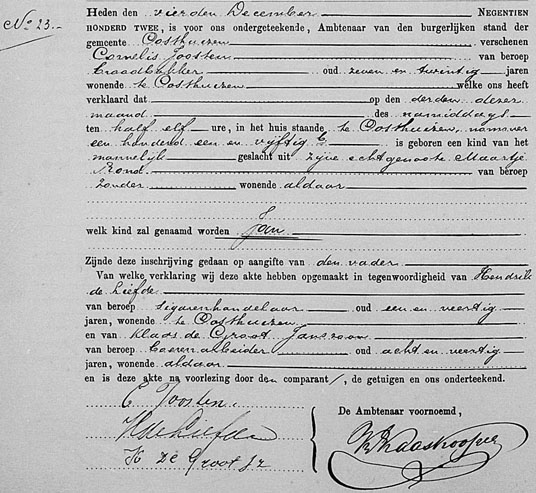 No 23.
Heden den vierden December NEGENTIEN
HONDERD TWEE, is voor ons ondergeteekende, Ambtenaar van den burgerlijken stand der
gemeente Oosthuizen verschenen
Cornelis Joosten van beroep
broodbakker oud zeven en twintig jaren
wonende te Oosthuizen welke ons heeft
verklaard dat op den derden dezer
maand des namiddags
ten half elf ure, in het huis staande te Oosthuizen, nommer
een honderd een en vijftig C is geboren een kind van het
mannelijk geslacht uit zijne echtgenoote Maartje
Rond van beroep
zonder wonende aldaar
welk kind zal genaamd worden Jan
Zijnde deze inschrijving gedaan op aangifte van den vader
Van welke verklaring wij deze akte hebben opgemaakt in tegenwoordigheid van Hendrik
de Liefde
van beroep sigarenhandelaar oud een en veertig
jaren, wonende te Oosthuizen
en van Klaas de Groot Janszoon
van beroep boerenarbeider oud acht en veertig
jaren, wonende aldaar
en is deze akte na voorlezing door den comparant, de getuigen en ons onderteekend.
C Joosten.
De Ambtenaar voornoemd,
H de Liefde
K De Groot Jz